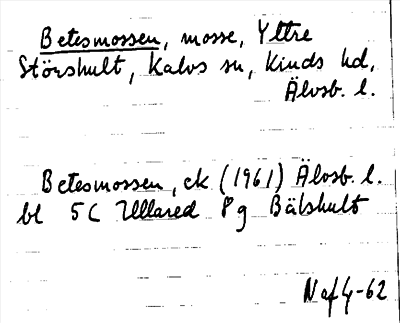 Betesmossen, mosse, Yttre
Störshult, Kalvs sn, Kinds hd,
Älvsb. l.
Betesmossen, ek (1961) Älvsb. l.
bl 5C Ullared 8g Bälshult